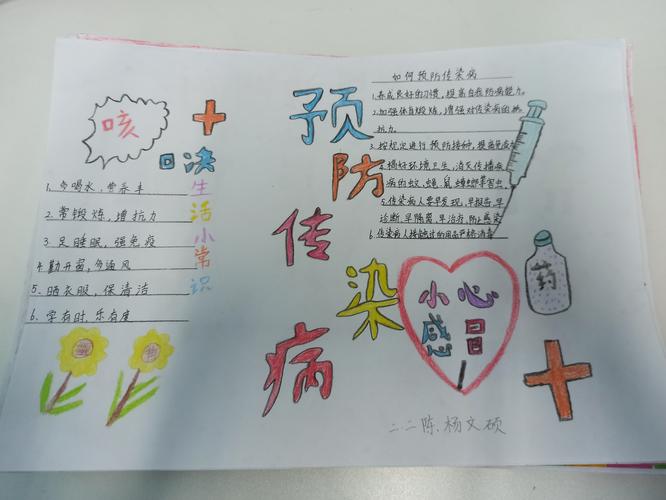 咳
口决
生活小常识
1、多喝水，常杀丰
2、常锻炼，增抗力
3、足睡眠，强免疫
4、勤开窗，多通风
5、晒衣服，保清洁
6、学有时，乐有度
预防传染病
如何预防传染病
1.养成良好的习惯，提高自我防病能力。
2.加强体育锻炼，增强对传染病的抵
抗力。
3、按规定进行预防接种，提高免疫力
4、搞好环境卫生，消灭传播疾
病的蚊、蝇、鼠、蟑螂等害虫
5.传染病人要早发现，早报告，早
诊断，早隔离，早治疗，防止感染
6、传染病人接触过的用品严格消毒
药
小心
感冒
二二陈、杨文硕